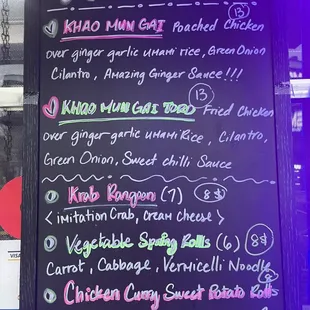 KHAO MUN GAI Poached Chicken 13
over ginger garlic UMAMI rice, Green Onion
Cilantro, Amazing Ginger Sauce !!!
13
KHAO MUN GAI TODD Fried Chicken
over ginger garlic UMAMI Rice, Cilantro,
Green Onion, Sweet chilli Sauce
Krab Rangoon (7) 8$
< imitation Crab, cream cheese >
Vegetable Spring Rolls (6) 8$
Carrot, Cabbage, Vermicelli Noodle
Chicken Curry Sweet Potato Rolls
VISA